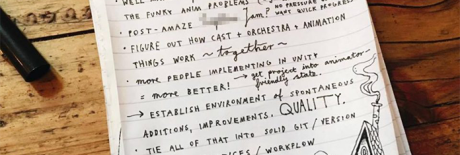 THE FUNKY ANIM PROBLEMS
NO PRESSURE
WANT QUICK PROGRESS
• POST-AMAZE Jam?
• FIGURE OUT HOW CAST + ORCHESTRA + ANIMATION
THINGS WORK ~together~
• more PEOPLE IMPLEMENTING IN UNITY
= more BETTER! → get project into animator-
friendly state.
→ ESTABLISH ENVIRONMENT of SPONTANEOUS
ADDITIONS, IMPROVEMENTS, QUALITY.
• TIE ALL OF THAT INTO SOLID GIT / VERSION
/ WORKFLOW